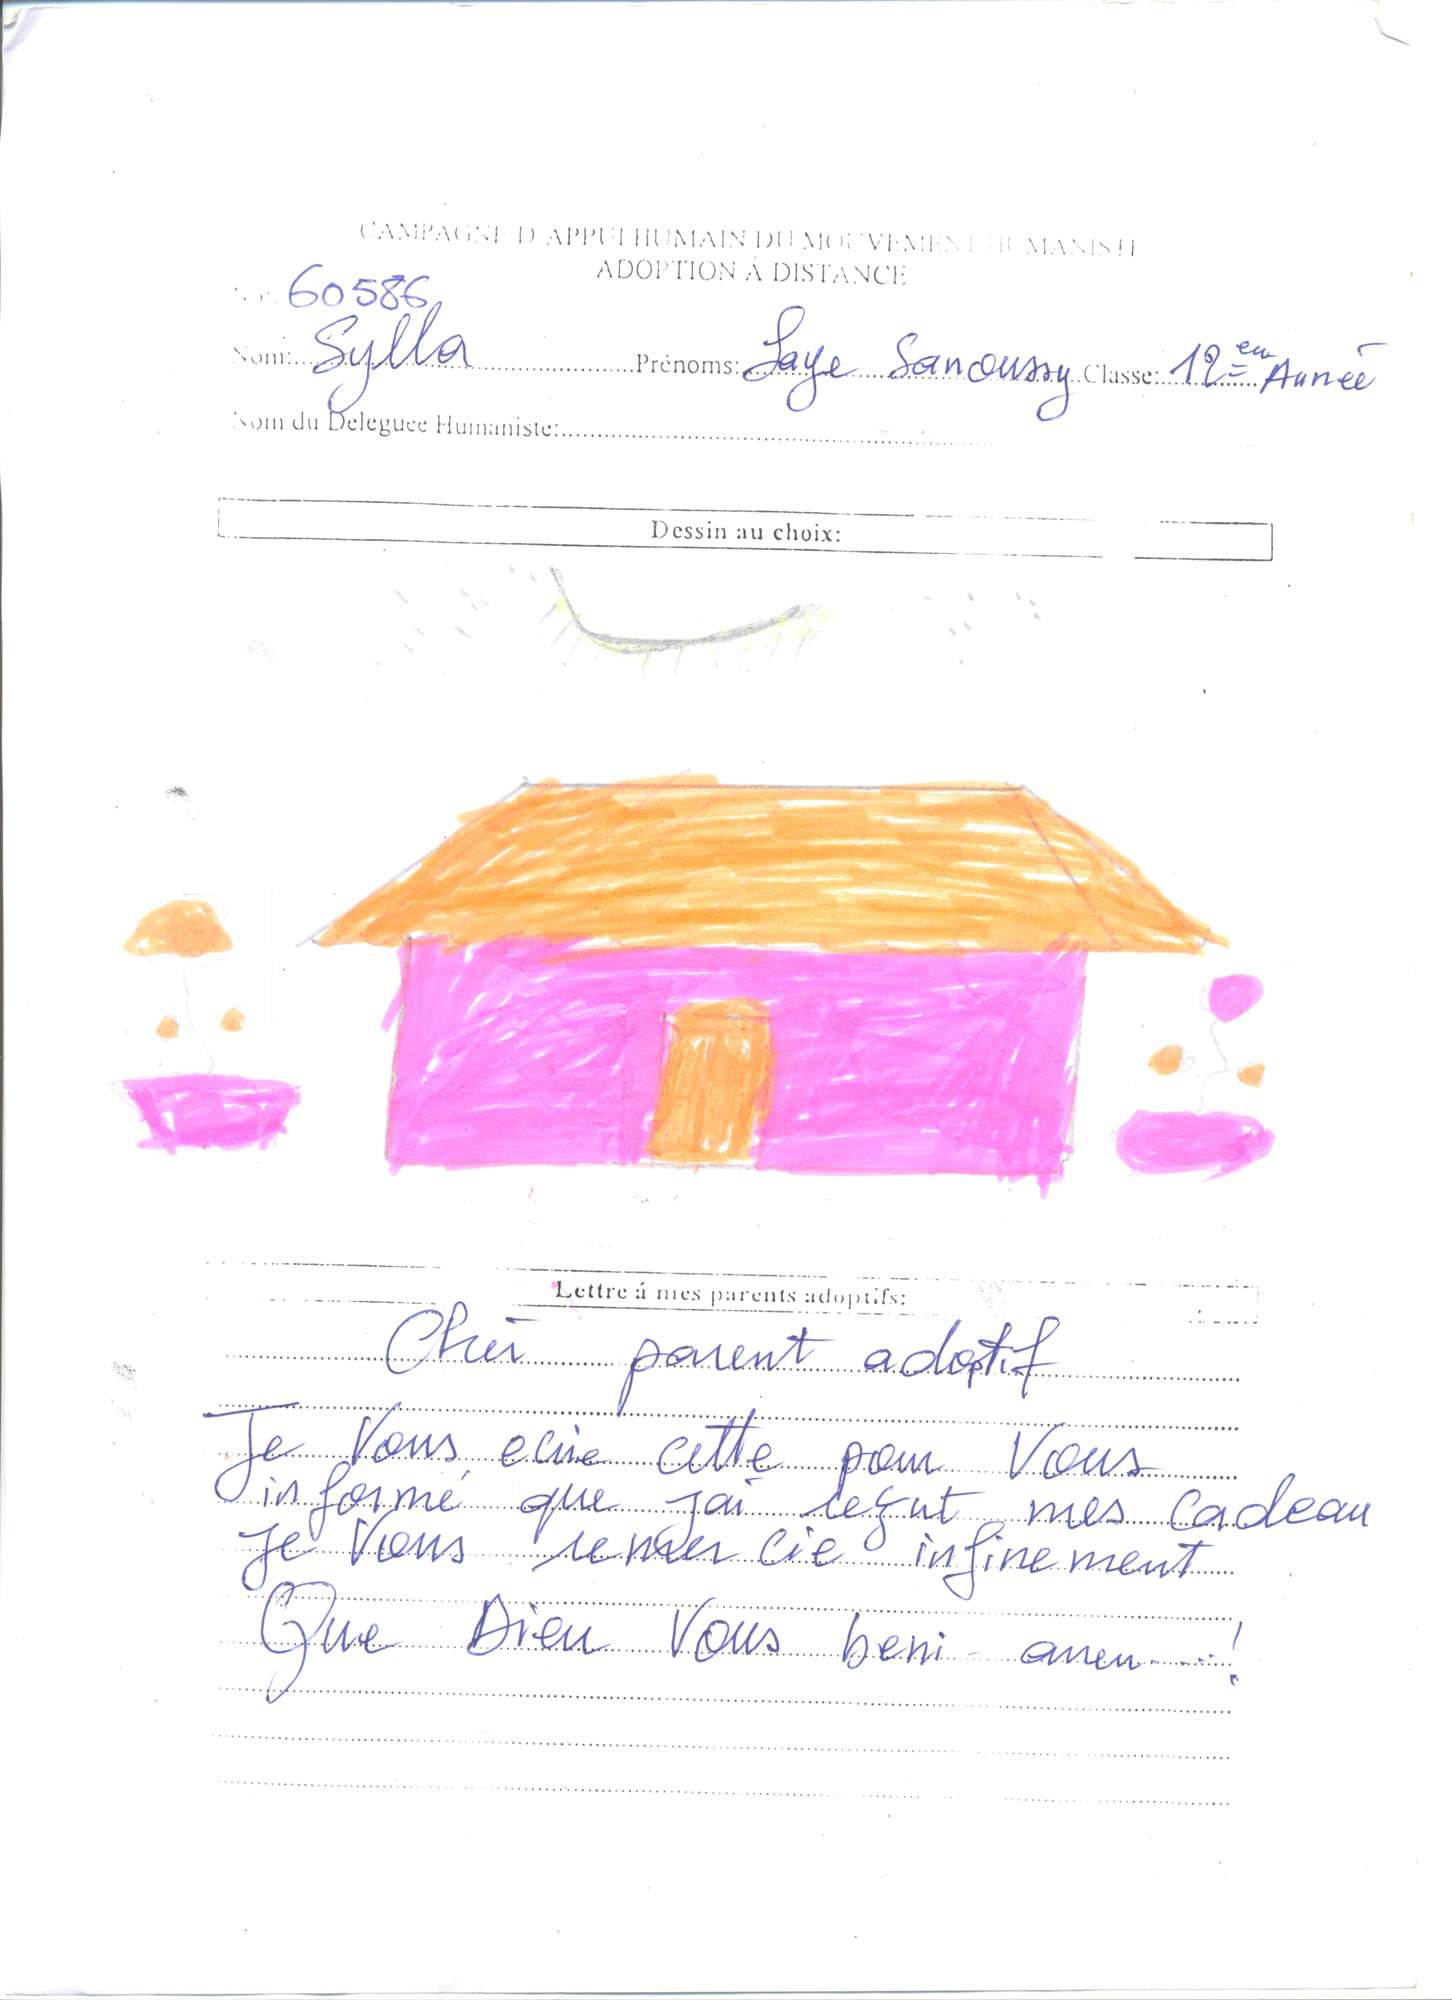 CAMPAGNE D'APPUI HUMAIN DU MOUVEMENT HUMANISTE
ADOPTION Á DISTANCE
60586
Nom: Sylla Prénoms: Saye Sanoussy Classe: 12 em Année
Nom du Deleguee Humaniste:
Dessin au choix:
Lettre á mes parents adoptifs:
Cher parent adoptif
Je Vous ecrie cette pour Vous
informé que jai reçut mes cadeau
je Vous remercie infinement
Que Dieu Vous beni amen !